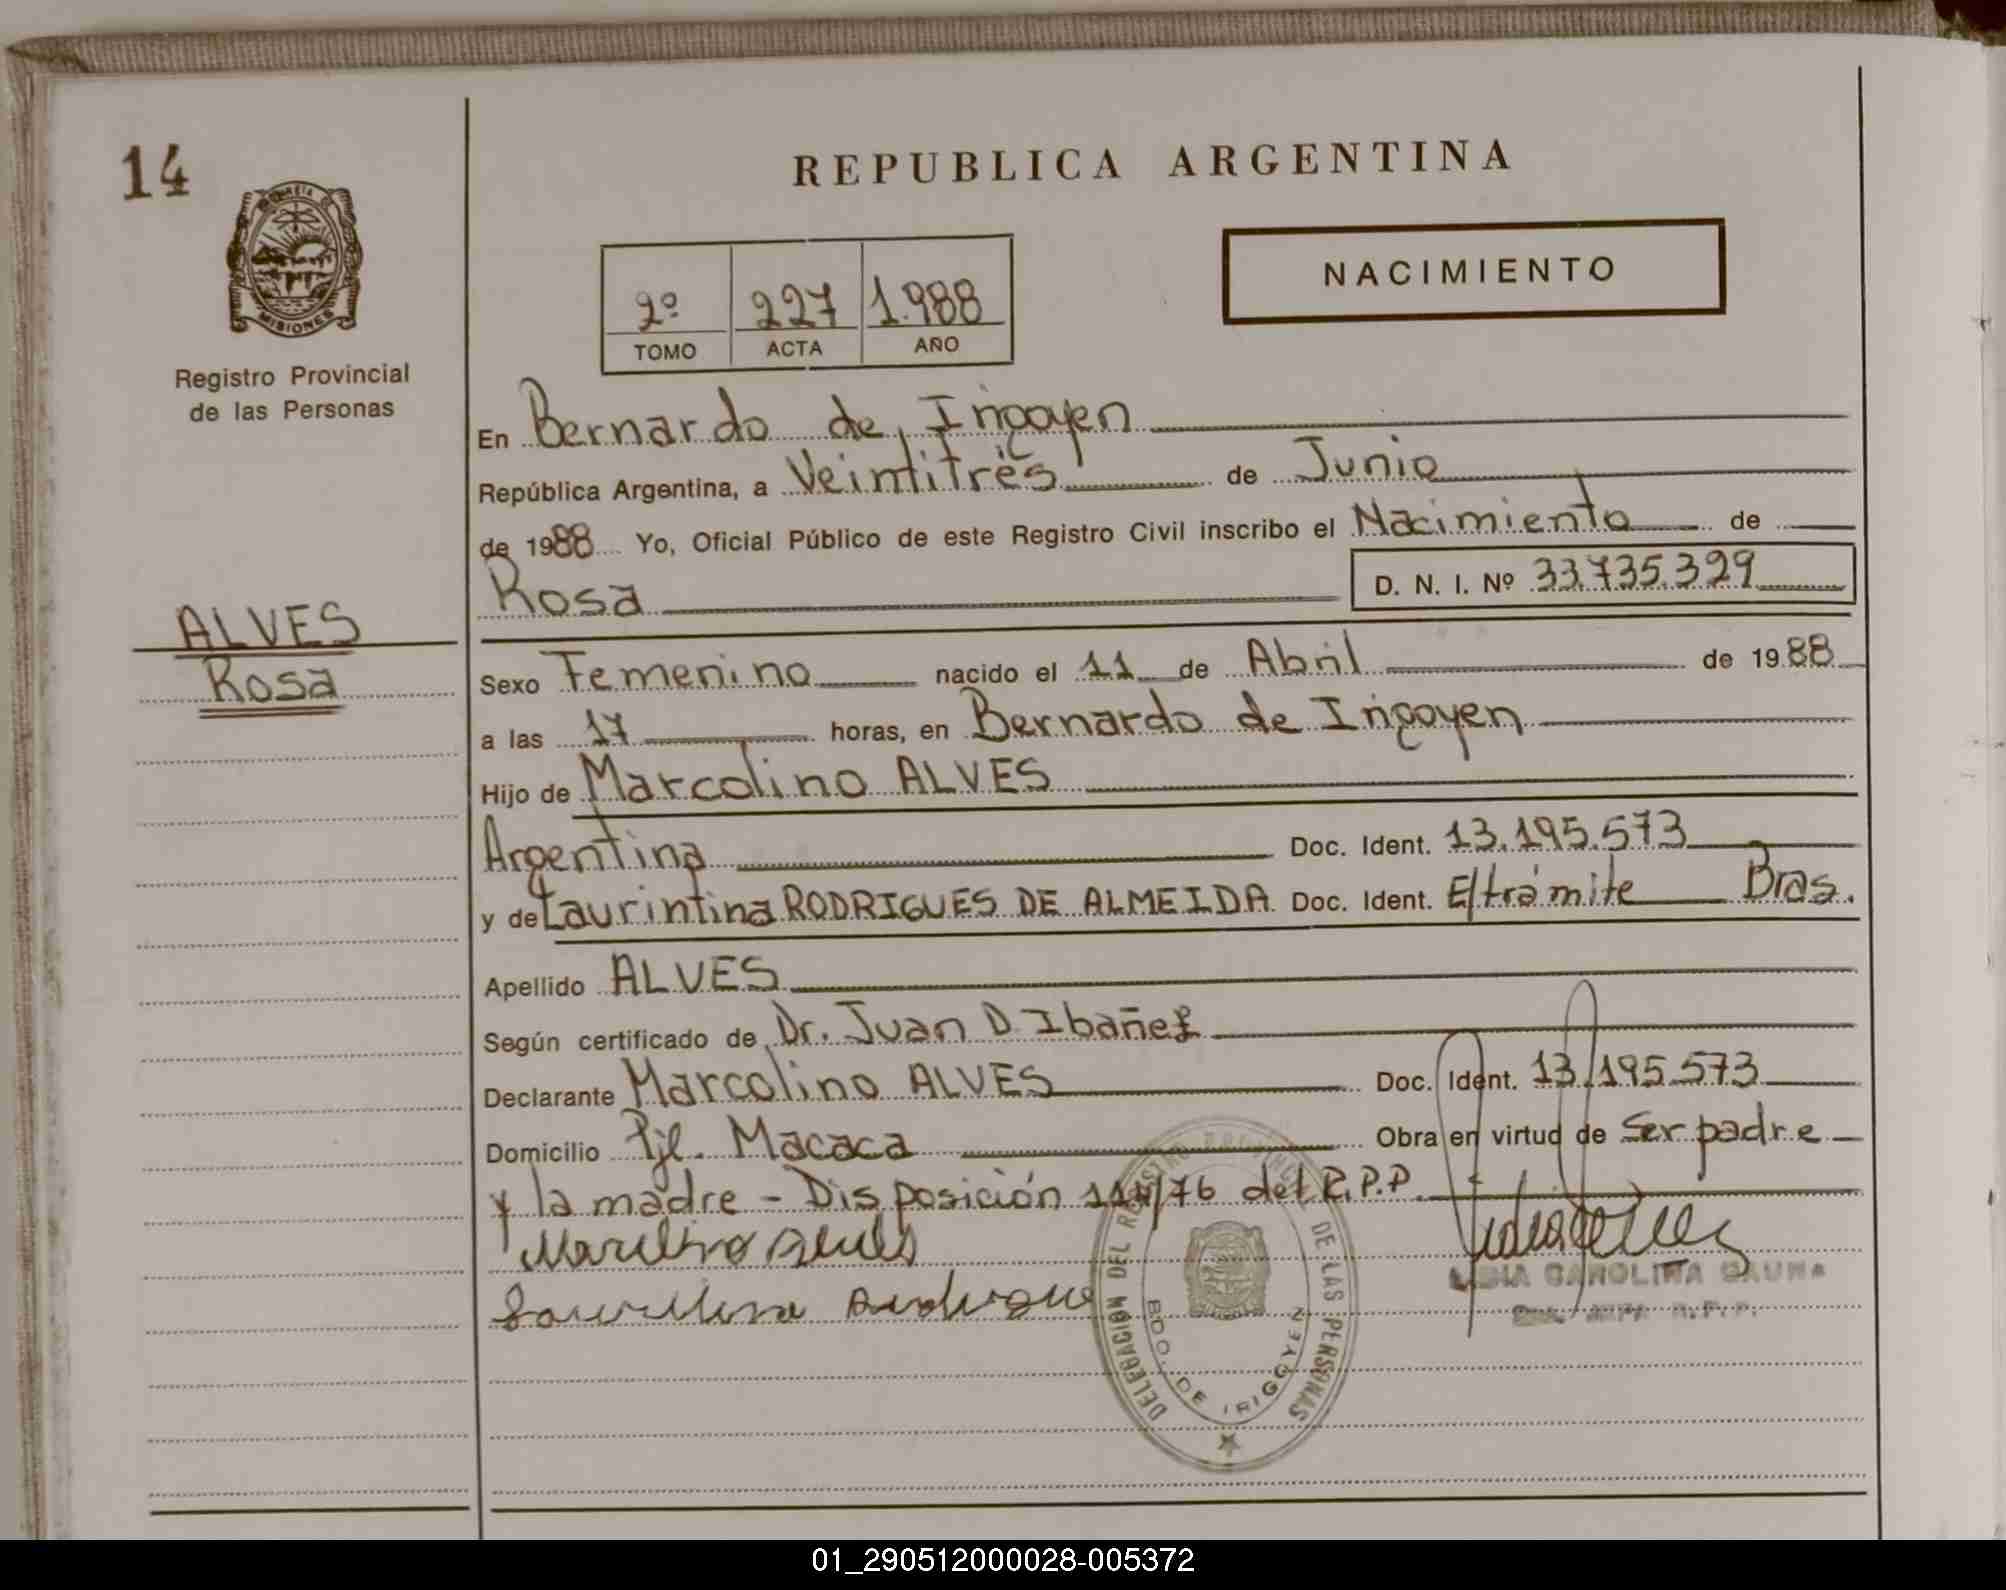 14
MISIONES
Registro Provincial
de las Personas
ALVES
Rosa
REPUBLICA ARGENTINA
NACIMIENTO
2º 227 1.988
TOMO ACTA AÑO
En Bernardo de Irigoyen
República Argentina, a Veintitrés de Junio
de 1988 Yo, Oficial Público de este Registro Civil inscribo el Nacimiento de
Rosa D. N. I. Nº 33.735.329
Sexo Femenino nacido el 11 de Abril de 1988
a las 17 horas, en Bernardo de Irigoyen
Hijo de Marcolino ALVES
Argentina Doc. Ident. 13.195.573
y de Laurintina RODRIGUES DE ALMEIDA Doc. Ident. E/trámite Bras.
Apellido ALVES
Según certificado de Dr. Juan D. Ibañez
Declarante Marcolino ALVES Doc. Ident. 13.195.573
Domicilio Pje. Macaca Obra en virtud de ser padre
y la madre - Disposición 114/76 del R.P.P.
DELEGACION DEL REGISTRO PROVINCIAL DE LAS PERSONAS
BDO. DE IRIGOYEN
CAROLINA GAUNA
R.P.P.
01_290512000028-005372